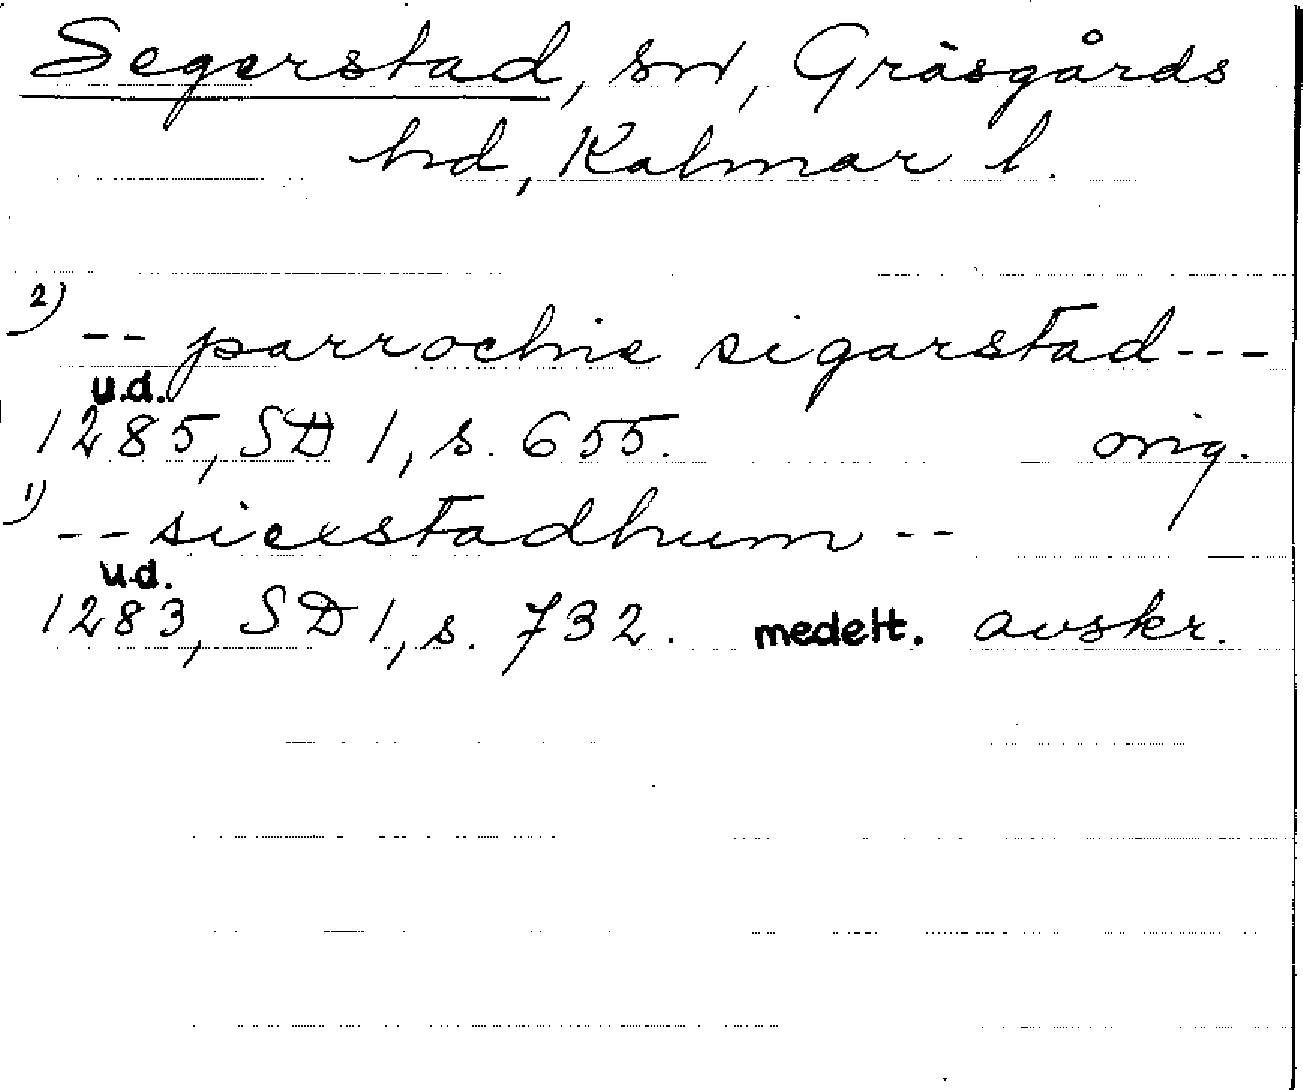 Segerstad, sn, Gräsgårds
hd, Kalmar l.
2) -- parrochie sigarstad ---
u.d.
1285, SD 1, s. 655. orig.
1) -- sicxstadhum --
u.d.
1283, SD 1, s. 732. medelt. avskr.